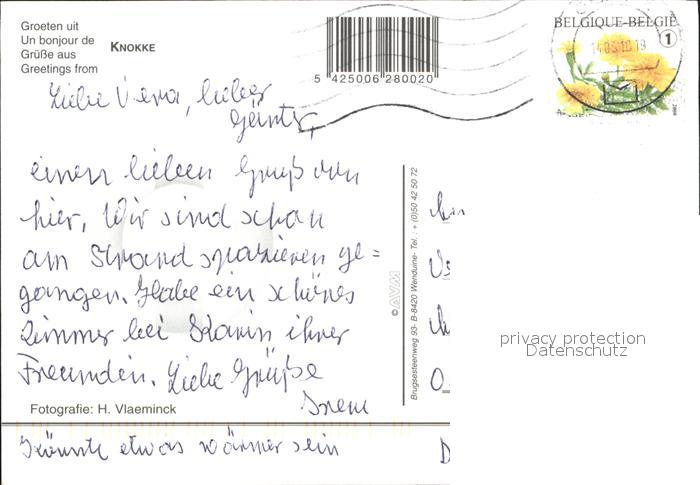 Groeten uit
Un bonjour de
Grüße aus
Greetings from
KNOKKE
5 425006 280020
BELGIQUE-BELGIË
1
Liebe Vera, lieber
Günter,
einen lieben Gruß von
hier, Wir sind schon
am Strand spazieren ge=
gangen. Habe ein schönes
Zimmer bei Karin ihrer
Freundin. Liebe Grüße
Irene
Fotografie: H. Vlaeminck
Könnte etwas wärmer sein
© AVM
Brugsesteenweg 93- B-8420 Wenduine- Tel. : + (0)50 42 50 72
privacy protection
Datenschutz